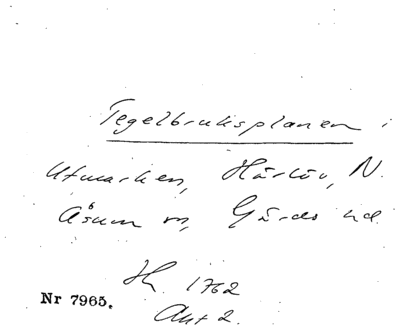 Tegelbruksplanen i
Utmarken, Härlöv, N.
Åsum sn, Gärds hd
Hr 1762
Nr 7965.
Akt 2.